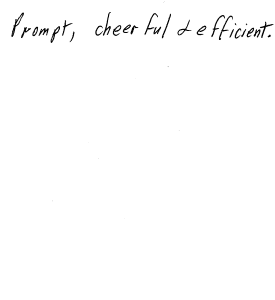 Prompt, cheerful & efficient.